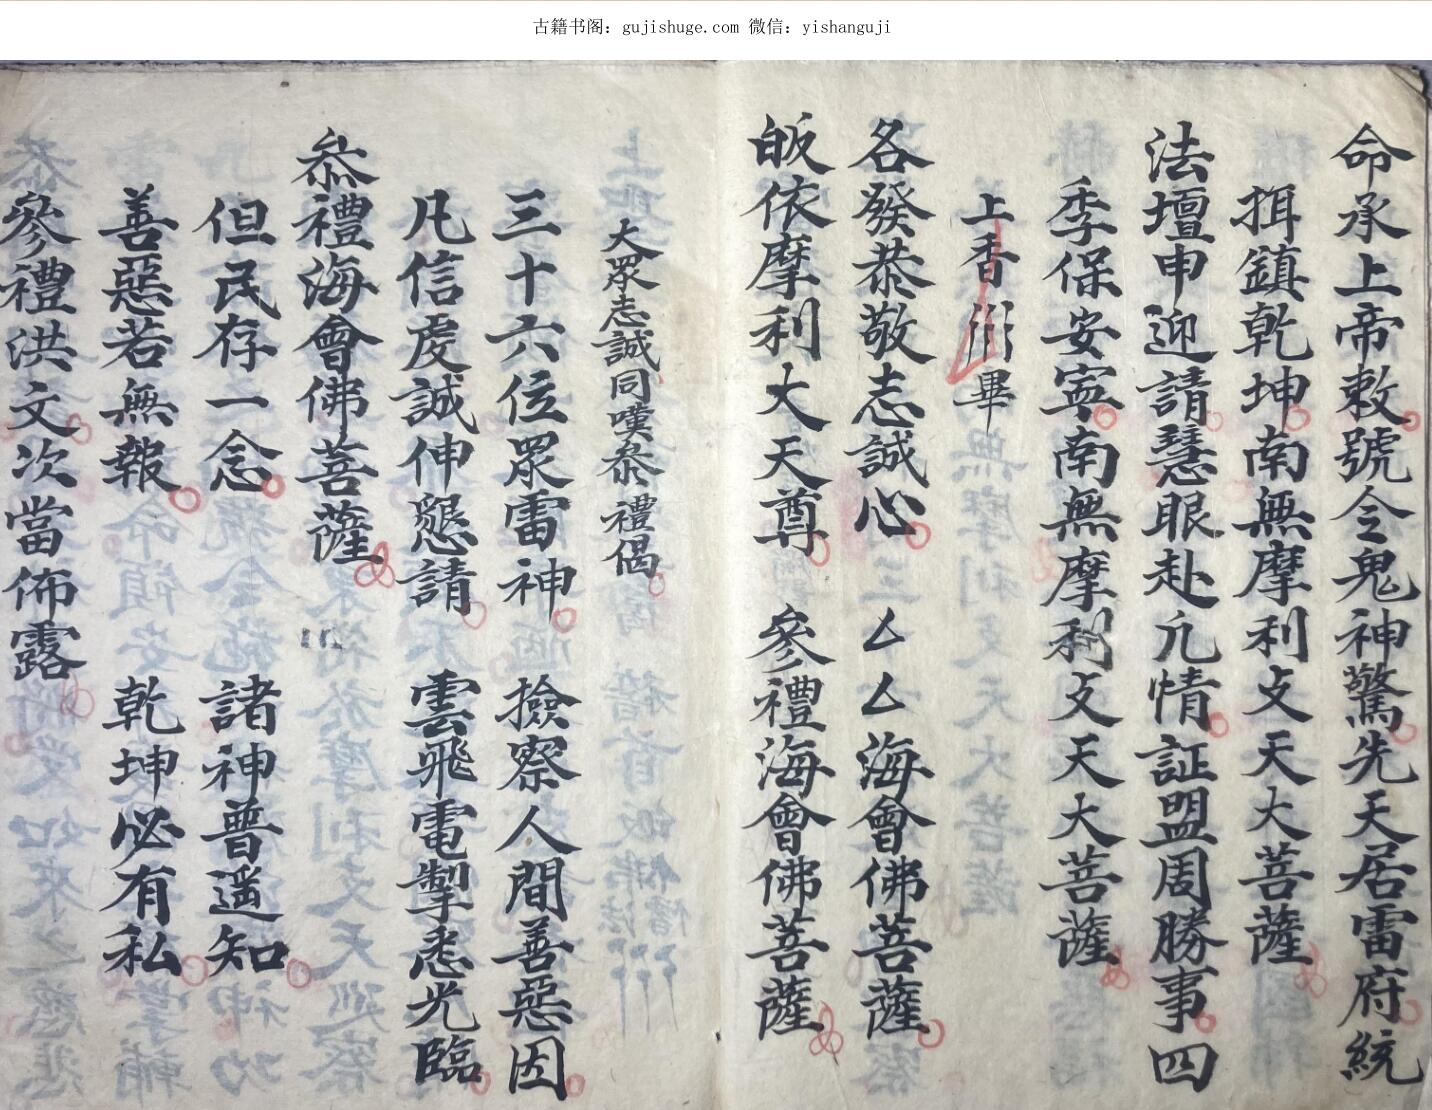 古籍书阁：gujishuge.com 微信：yishanguji
命承上帝敕號令鬼神驚先天居雷府統
揖鎮乾坤南無摩利攴天大菩薩
法壇申迎請慧眼赴凢情証盟周勝事四
季保安寧南無摩利攴天大菩薩
上香 畢
各發恭敬志誠心 厶厶海會佛菩薩
皈依摩利大天尊 參禮海會佛菩薩
大眾志誠同嘆叅禮偈
三十六位眾雷神 撿察人間善惡因
凡信虔誠伸懇請 雲飛電掣悉光臨
叅禮海會佛菩薩
但民存一念 諸神普遥知
善惡若無報 乾坤必有私
參禮洪文次當佈露